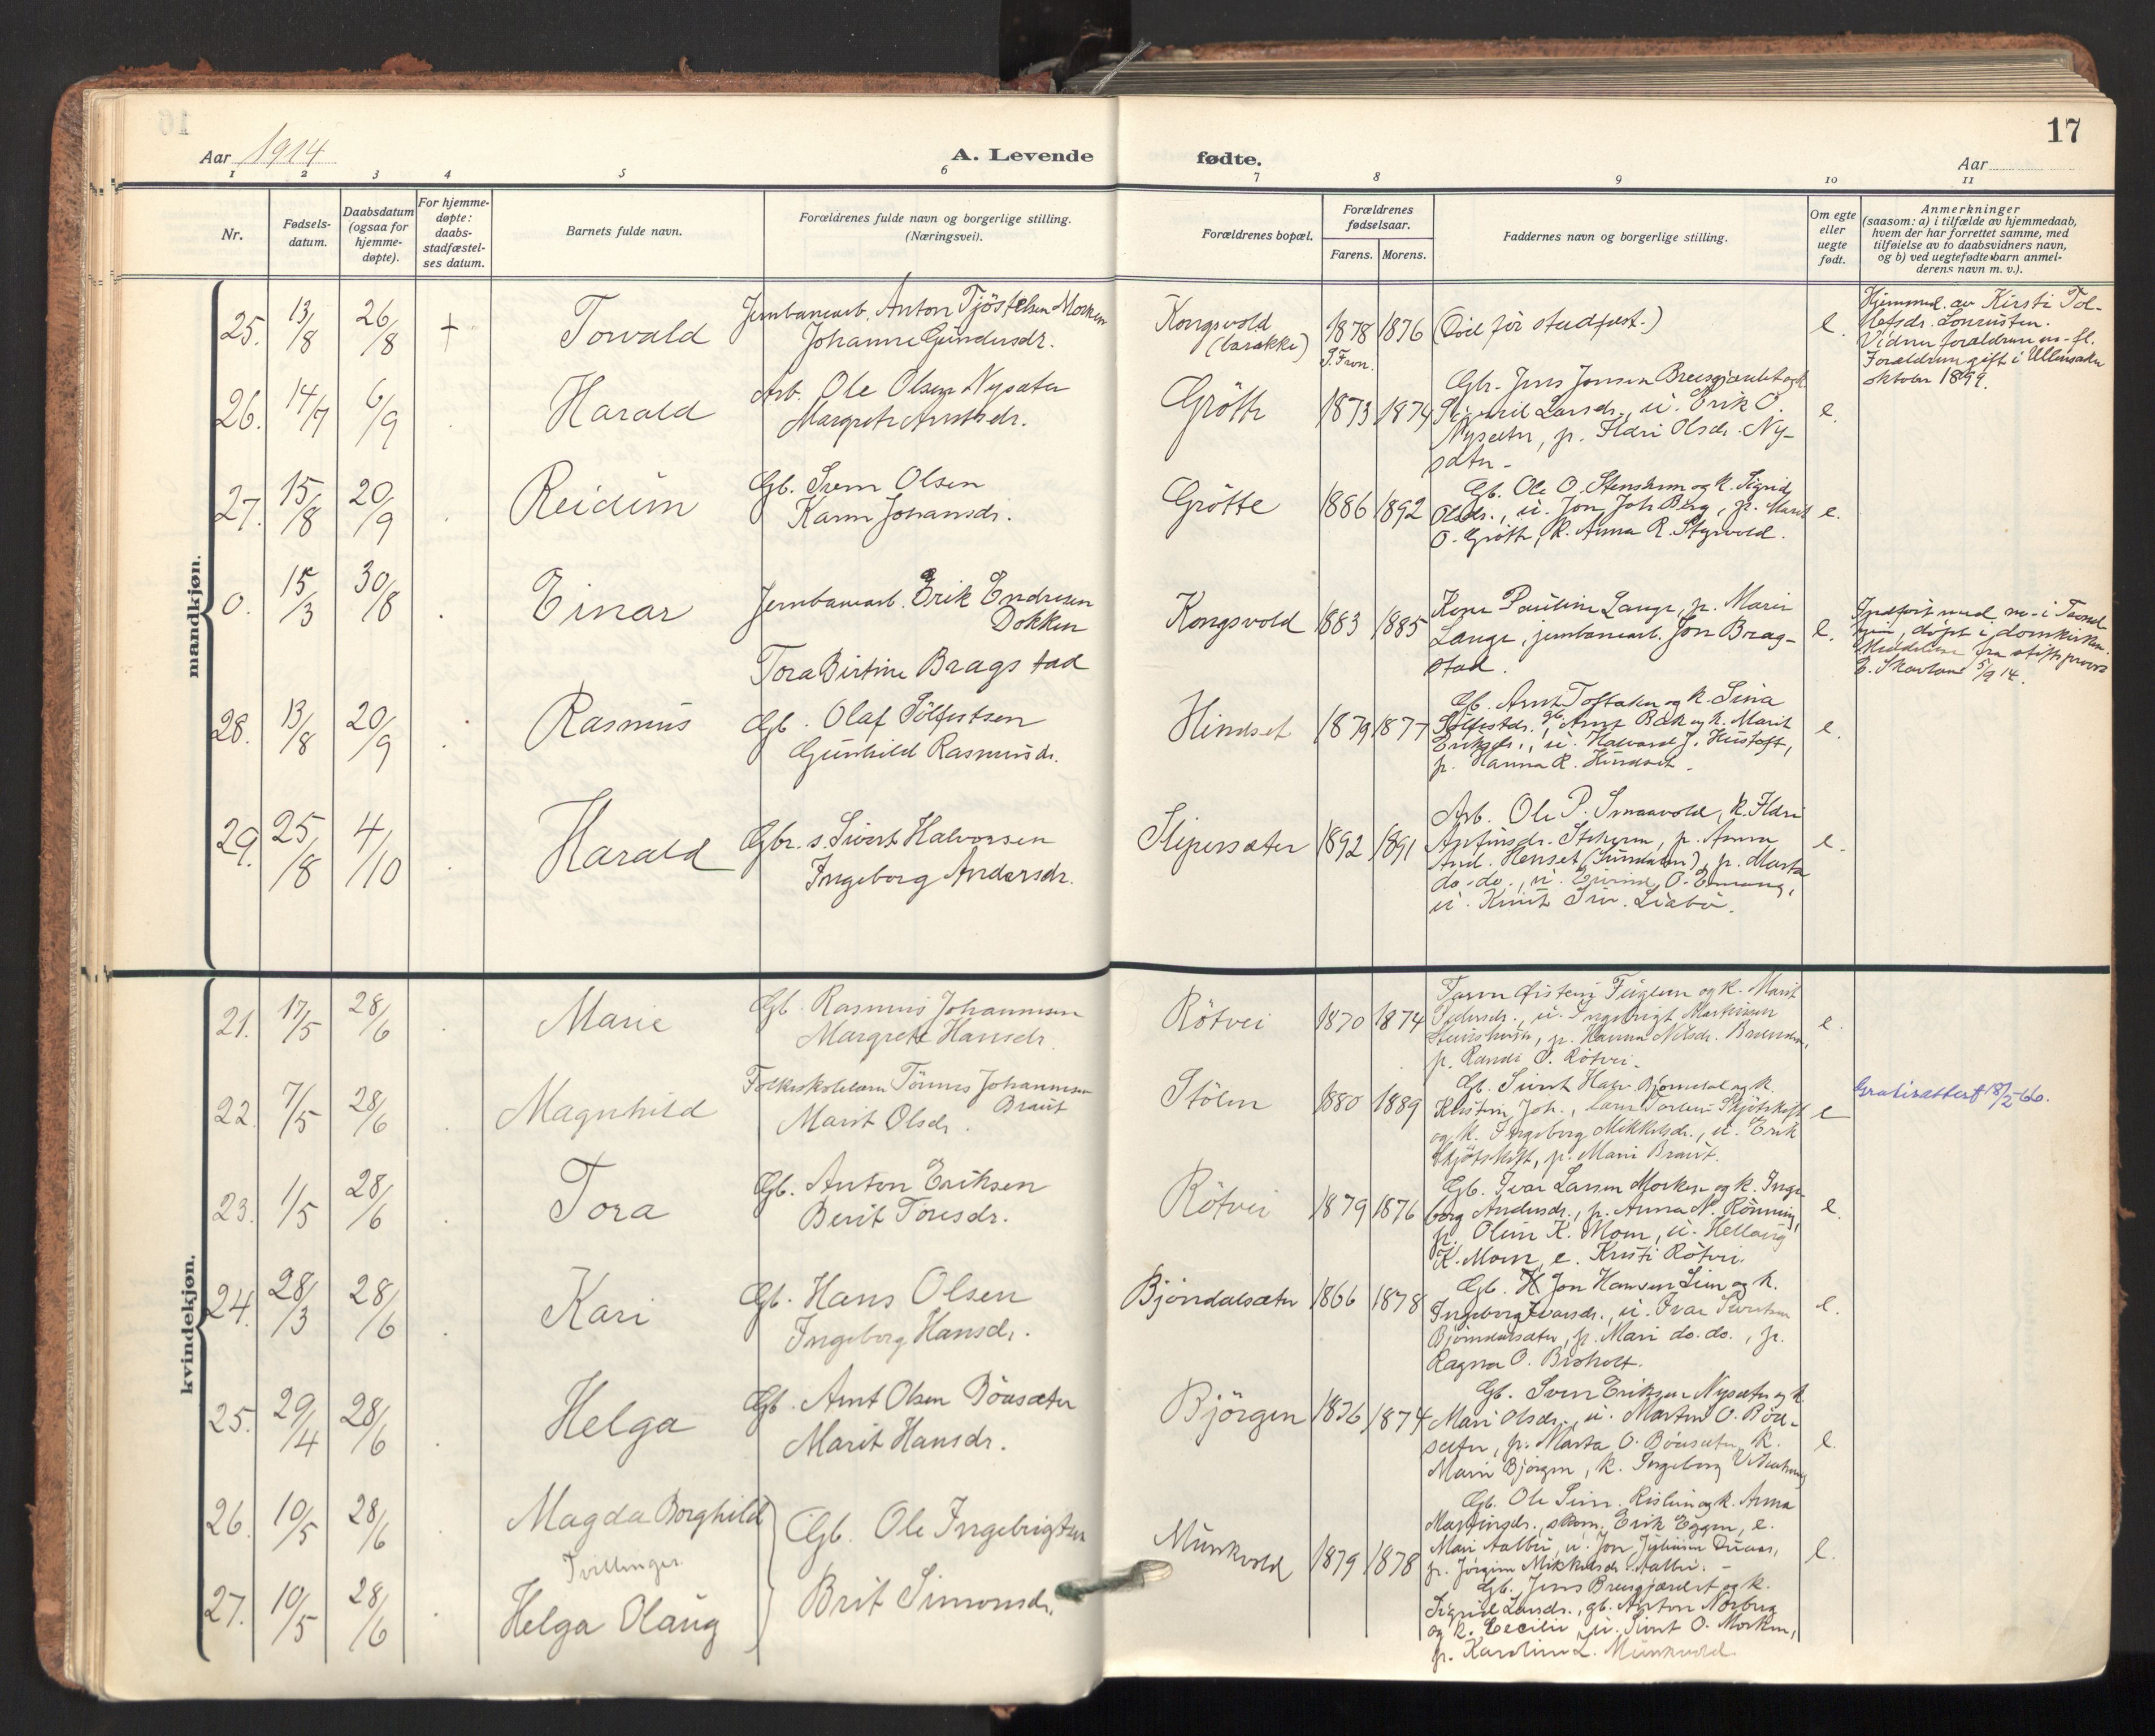 16
17
Aar 1914
A. Levende fødte.
Aar
1 2 3 4 5 6 7 8 9 10 11
Nr.
Fødsels-
datum.
Daabsdatum
(ogsaa for
hjemme-
døpte).
For hjemme-
døpte:
daabs-
stadfæstel-
ses datum.
Barnets fulde navn.
Forældrenes fulde navn og borgerlige stilling.
(Næringsvei).
Forældrenes bopæl.
Forældrenes
fødselsaar.
Farens. Morens.
Faddernes navn og borgerlige stilling.
Om egte
eller
uegte
født.
Anmerkninger
(saasom: a) i tilfælde av hjemmedaab,
hvem der har forrettet samme, med
tilføielse av to daabsvidners navn,
og b) ved uegtefødte barn anmel-
derens navn m. v.).
mandkjøn.
25. 13/8 26/8 + Torvald
Jernbanearb. Anton Tjöstelsen Morken
Johanne Gundersdr.
Kongsvold
(barakke)
1878 1876
S. Fron.
(Död för stadfæst.)
e.
Hjemmed. av Kirsti Tol-
lefsdr.
Vidner forældrene
Forældrene gift i Ullensaker
oktober 1899.
26. 14/7 6/9 Harald
Arb. Ole Olsen Nysæter
Margrete Arntsdr.
Grötte 1873 1874
Gbr. Jens Jonsen Breesgjærdet og k.
Sigrid Larsdr., u. Erik O.
Nysæter, p. Ildri Olsdr. Ny-
sæter.
e.
27. 15/8 20/9 Reidun
Gb. Svein Olsen
Karen Johansdr.
Grötte 1886 1892
Gb. Ole O. Stensheim og k. Sigrid
Olsdr., u. Jon Joh. Berg, p. Marit
O. Grötte, k. Anna R. Styrvold.
e.
0. 15/3 30/8 Einar
Jernbanearb. Erik Endresen
Dokken
Tora Birtine Bragstad
Kongsvold 1883 1885
Kone Pauline Lange, p. Marie
Lange, jernbanearb. Jon Brag-
stad.
e.
Indført med no. i Trond-
hjem, döpt i domkirken.
Meddelelse fra stiftsprovst
5/9 14.
28. 13/8 20/9 Rasmus
Gb. Olaf Sölfestsen
Gunhild Rasmusdr.
Hindset 1879 1877
Gb. Arnt Toftaker og k. Sina
Sölfestdr., gb. Arnt Bæk og k. Marit
Eriksdr., u. Halvard J. Hustoft,
p. Hanna R. Hindset.
e.
29. 25/8 4/10 Harald
Gbr. s. Sivert Halvorsen
Ingeborg Andersdr.
Slipersæter 1892 1891
Arb. Ole P. Smaavold, k. Ildri
Anfinsdr. p. Anna
And. Henset (Sundalen), p. Marta
do. do., u. Eivind O.
u. Knut Liabö.
e.
kvindekjøn.
21. 17/5 28/6 Marie
Gb. Rasmus Johannesen
Margrete Hansdr.
Rötvei 1870 1874
Marit
Pedersdr., u. Ingebrigt Martinsen
p. Hanna Nilsdr.
p. Randi O. Rötvei.
e.
22. 7/5 28/6 Magnhild
Folkeskolelærer Tönnes Johannesen
Braut
Marit Olsdr.
Stölen 1880 1889
Gb. Sivert Halv. Bjørndal og k.
Kristine Joh., Skjötskift
og k. Ingeborg Mikkelsdr., u. Erik
Skjötskift, p. Marie Braut.
e
Gratisattest 18/2-66.
23. 1/5 28/6 Tora
Gb. Anton Eriksen
Berit Toresdr.
Rötvei 1879 1876
Gb. Ivar Larsen Morken og k. Inge-
borg Andersdr., p. Anna N. Rönning,
p. Oline K. Moen, u. Hellaug
K. Moen, e. Kristi Rötvei.
e.
24. 28/3 28/6 Kari
Gb. Hans Olsen
Ingeborg Hansdr.
Bjöndalsæter 1866 1878
Gb. Jon Hansen Lien og k.
Ingeborg Ivarsdr., u. Ivar Sivertsen
Bjöndalsæter, p. Mari do. do., p.
Ragna O. Broholt.
e.
25. 29/4 28/6 Helga
Gb. Arnt Olsen Böasæter
Marit Hansdr.
Björgen 1876 1874
Gb. Sven Eriksen Nysæter og k.
Mari Olsdr., u. Morten O. Böa-
sæter, p. Marta O. Böasæter, k.
Mari Björgen, k. Ingeborg
e.
26. 10/5 28/6 Magda Borghild
Tvillinger.
27. 10/5 28/6 Helga Olaug
Gb. Ole Ingebrigtsen
Brit Simonsdr.
Munkvold 1879 1878
Gb. Ole Sim. Rislien og k. Anna
Martinsdr., skom. Erik Eggen, e.
Mari Aalbu, u. Jon
p. Jörgine Mikkelsdr. Aalbu.
Gb. Jens Breesgjærdet og k.
Sigrid Larsdr., gb. Anton Norberg
og k. Cecilie, u. Sivert O. Morken,
p. Karoline L. Munkvold
e.